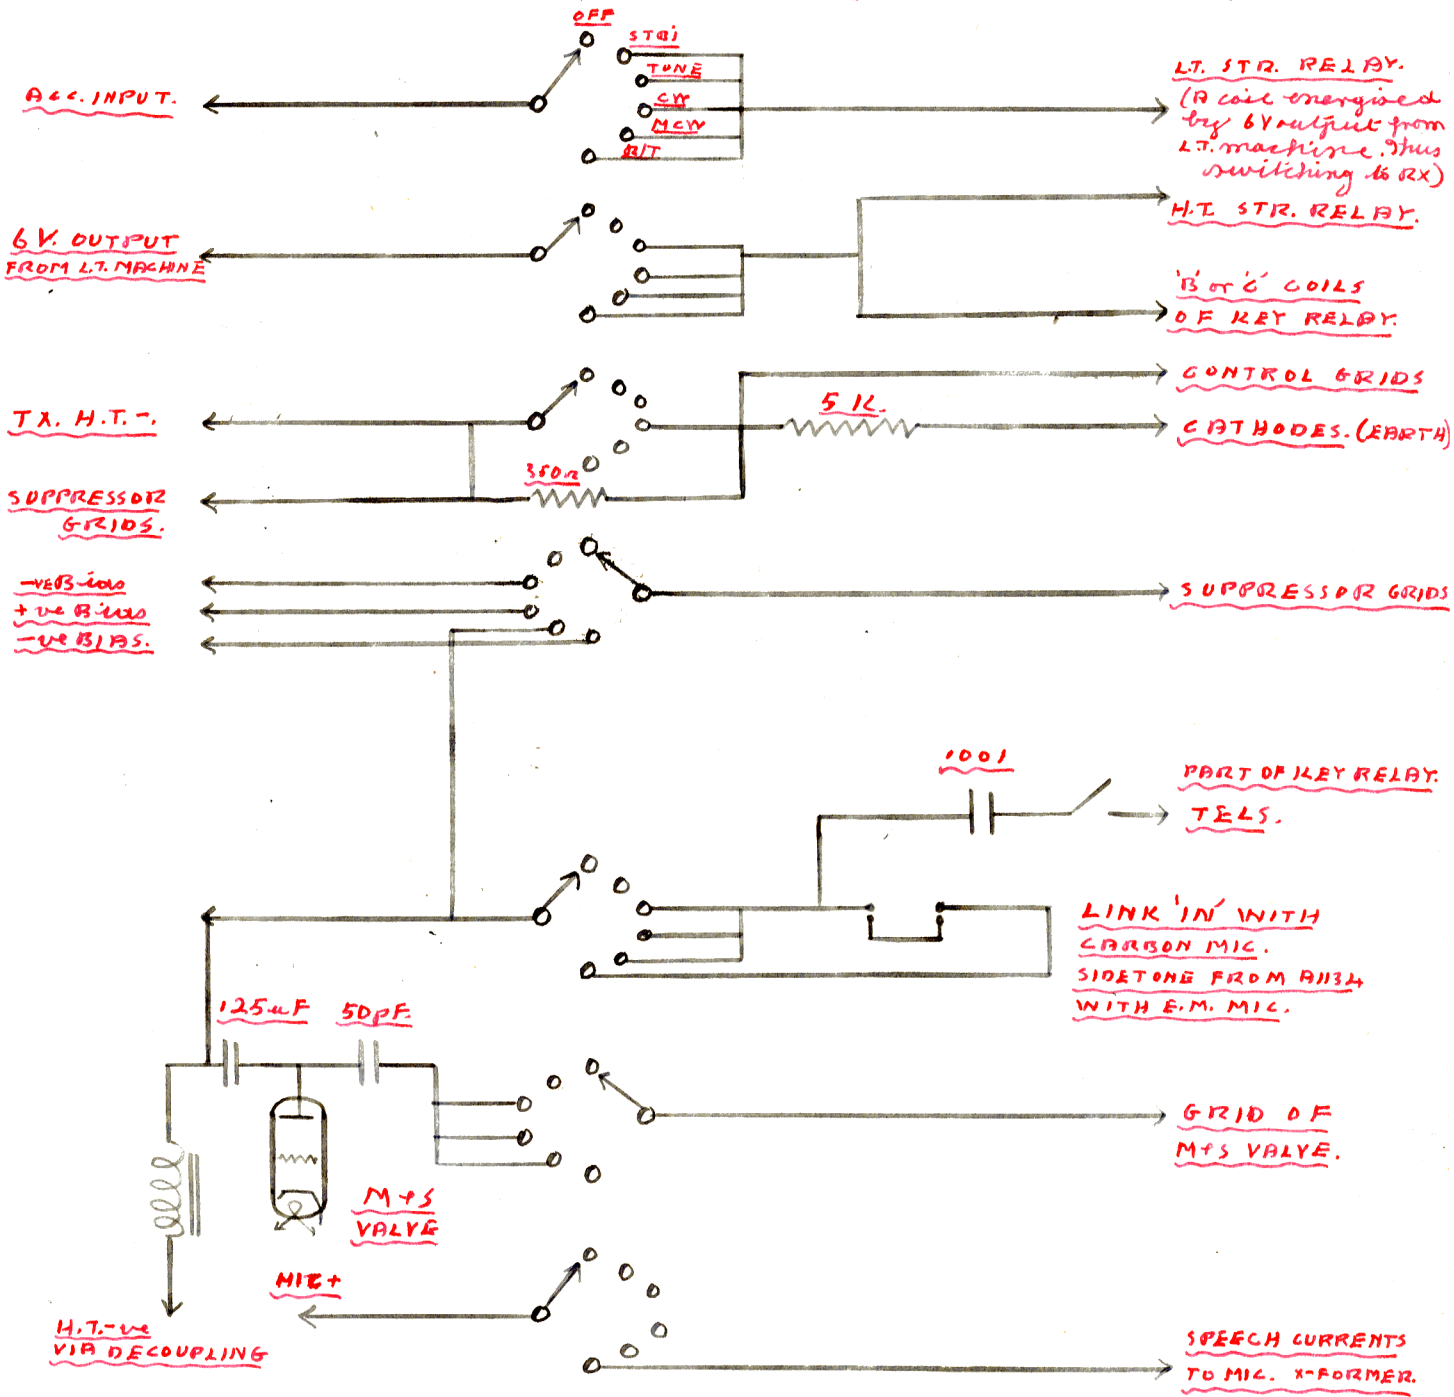 OFF
STBi
TUNE
CW
MCW
R/T
ACC. INPUT.
L.T. STR. RELAY.
(A coil energised
by 6V output from
L.T. machine. Thus
switching to RX)
6 V. OUTPUT
FROM L.T. MACHINE
H.T. STR. RELAY.
'B' or 'C' COILS
OF KEY RELAY.
CONTROL GRIDS
TX. H.T.-.
5 K.
CATHODES. (EARTH)
350Ω
SUPPRESSOR
GRIDS.
-ve Bias
+ve Bias
-ve BIAS.
SUPPRESSOR GRIDS
.001
PART OF KEY RELAY.
TELS.
LINK 'IN' WITH
CARBON MIC.
SIDETONE FROM A1134
WITH E.M. MIC.
.125uF
50pF.
GRID OF
M+S VALVE.
M+S
VALVE
MIC+
H.T.-ve
VIA DECOUPLING
SPEECH CURRENTS
TO MIC. X-FORMER.